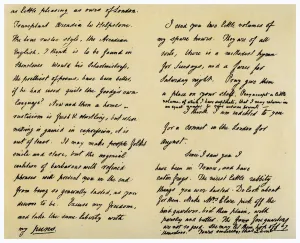 as little pleasing as ours of London.
Transplant Arcadia to Helpstone.
The true rustic style, the Arcadian
English, I think is to be found in
Shenstone. Would his Schoolmistress,
the prettiest of poems, have been better,
if he had used quite the Goody's own
language? Now and then a home
rusticism is fresh & startling, but when
nothing is gained in expression, it is
out of tenor. It may make people folks
smile and stare, but the ungenial
coalition of barbarous with refined
phrases will prevent you in the end
from being so generally tasted, as you
deserve to be. Excuse my freedom,
and take the same liberty with
my puns.
I send you two little volumes of
my spare hours. They are of all
sorts, there is a methodist hymn
for Sundays, and a farce for
Saturday night. Pray give them
a place on your shelf. Pray accept a little
volume, of which I have duplicate, that I may return in
an equal number to your welcome presents
I think I am indebted to you
for a sonnet in the London for
August.
Since I saw you I
have been in France, and have
eaten frogs. The nicest little rabbity
things you ever tasted. Do look about
for them. Make Mrs Clare pick off the
hind quarters, boil them plain, with
parsley and butter. The fore quarters
are not so good. She may let them hop off by
themselves. Yours sincerely,